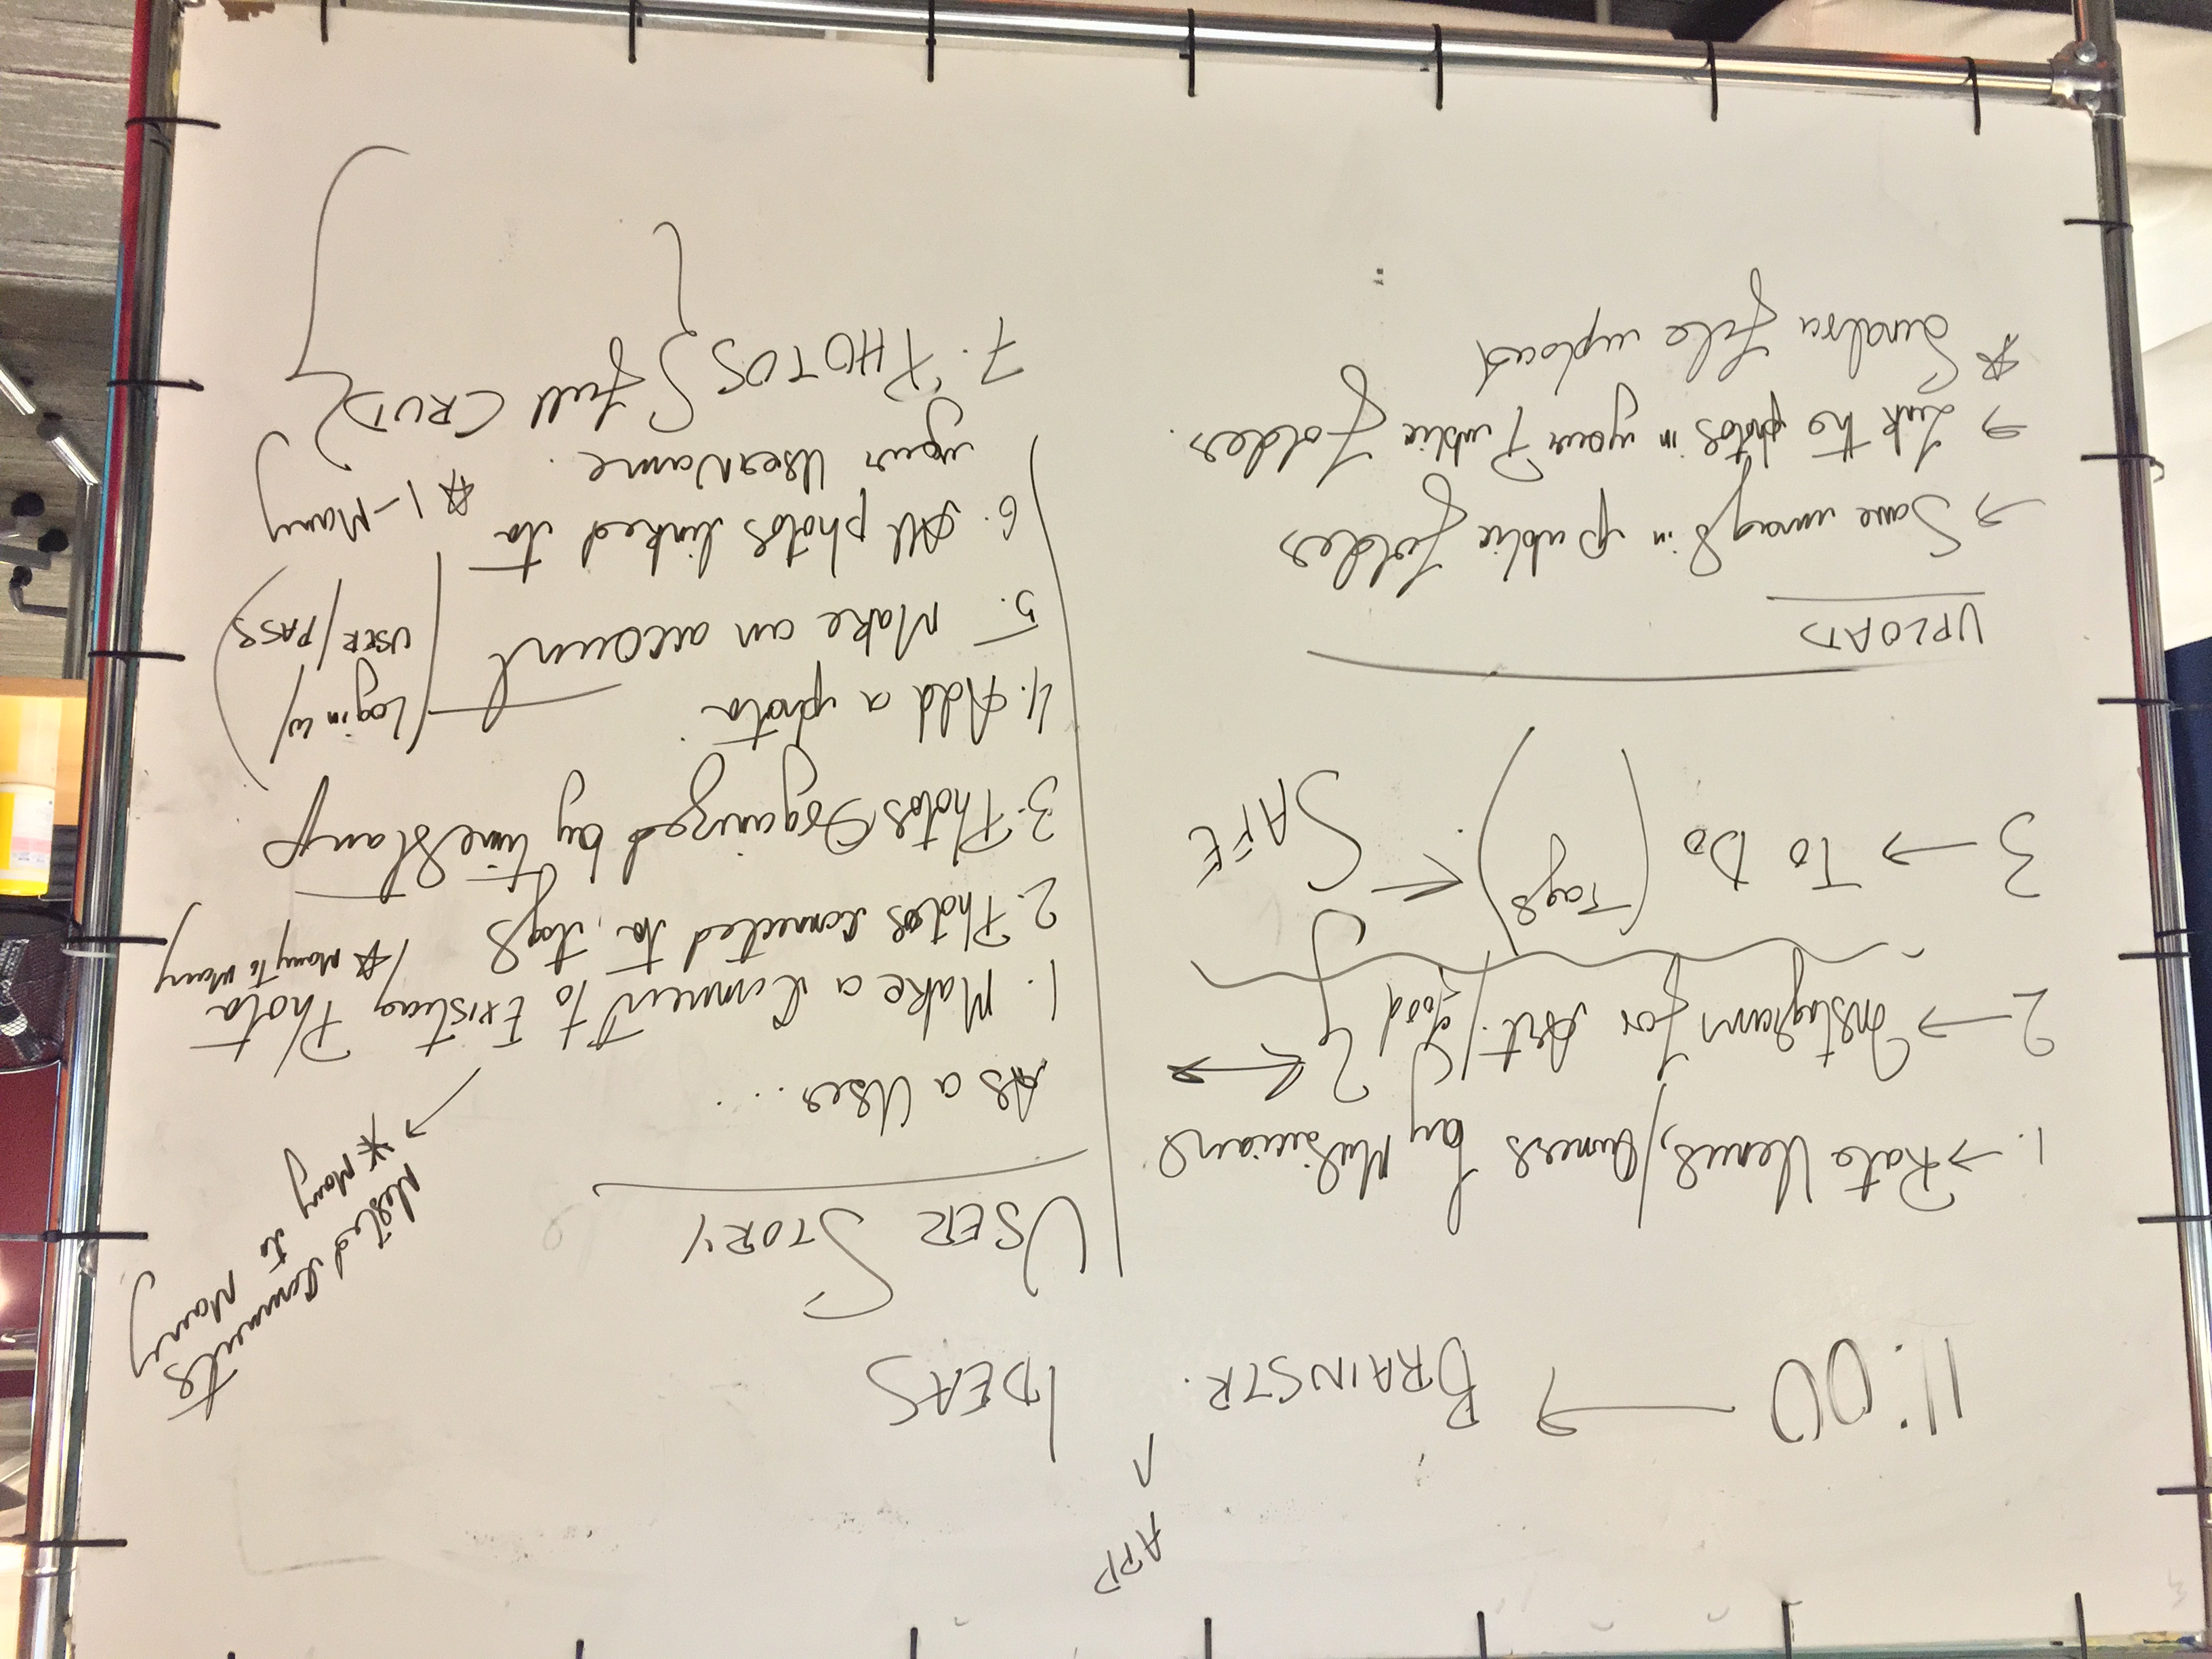 11:00 → BRAINSTR. APP IDEAS
1. → Rate Venue/Owners by Musicians
2 → Instagram for Art/food ?
3 → To Do (Tags) ← SAFE
UPLOAD
→ Save images in public folder
→ Link to photos in your Public Folder.
☆ Sinatra file upload
USER STORY
As a User...
1. Make a Comment to Existing Photo
→ Nested Comments
* Many to Many
2. Photos connected to tags
☆ Many To Many
3. Photos Organized by timestamp
4. Add a photo.
5. Make an account
(Login w/
USER/PASS)
6. All photos linked to
your UserName.
☆ 1-Many
7. PHOTOS { full CRUD }